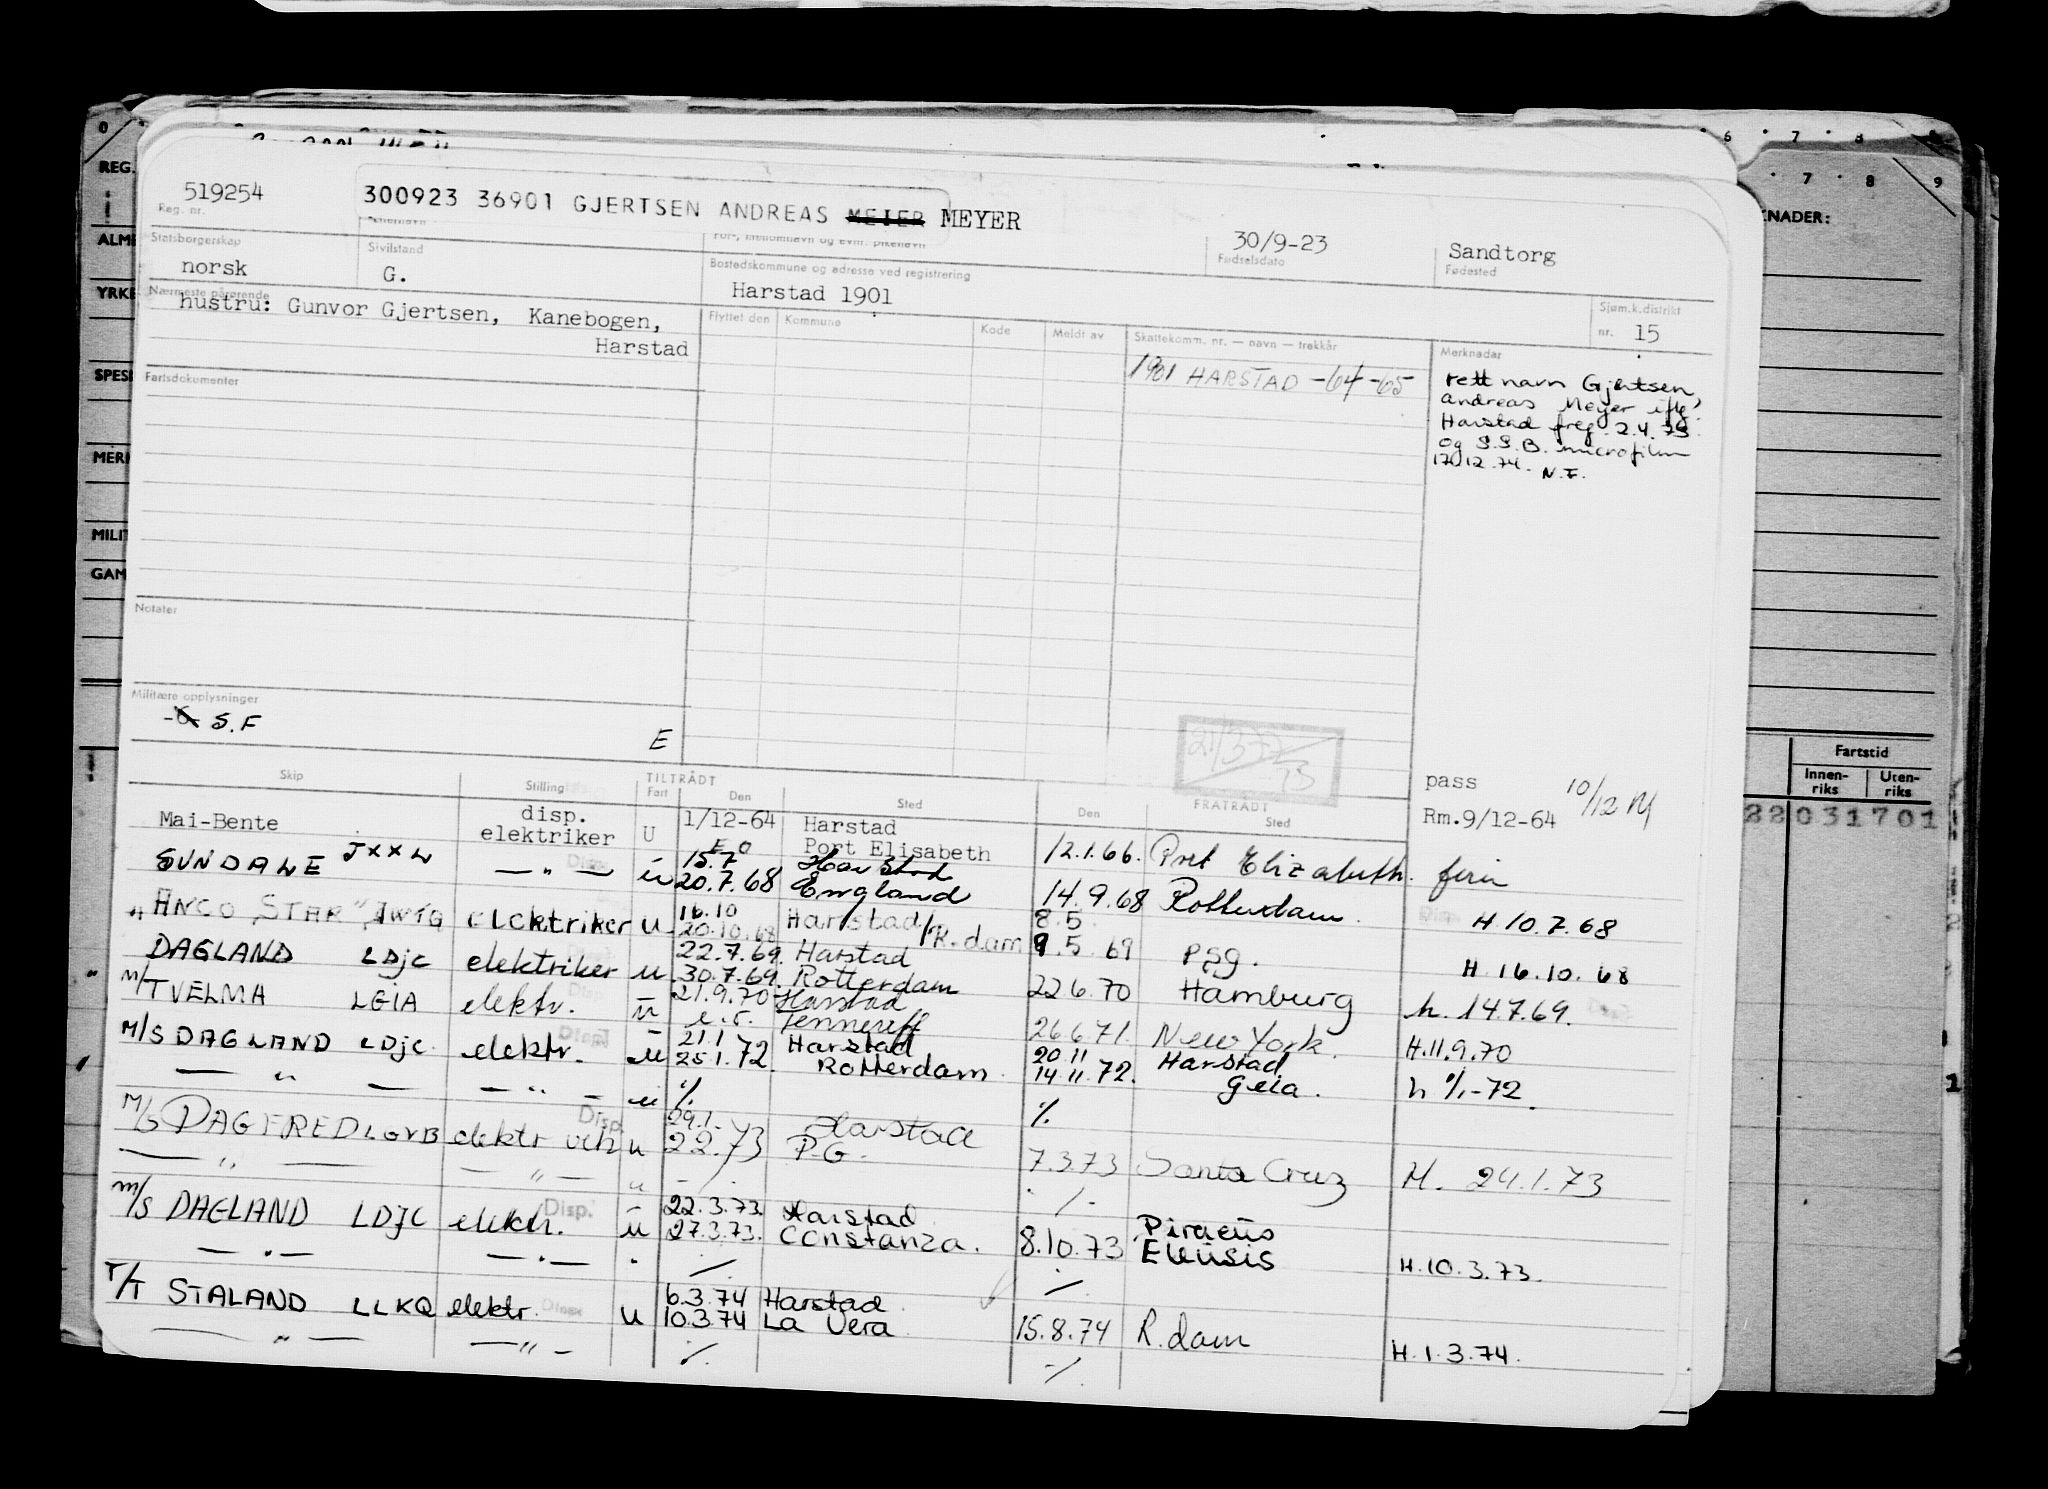 519254
Reg. nr.
300923 36901 GJERTSEN ANDREAS MEIER MEYER
For-, mellomnavn og evnt. pikenavn
30/9-23
Fødselsdato
Sandtorg
Fødested
Statsborgerskap
norsk
Sivilstand
G.
Bostedskommune og adresse ved registrering
Harstad 1901
Sjøm.k.distrikt
nr. 15
Nærmeste pårørende
hustru: Gunvor Gjertsen, Kanebogen,
Harstad
Flyttet den Kommune Kode Meldt av Skattekomm. nr. — navn — trekkår
1901 HARSTAD -64 -65
Merknader
rett navn Gjertsen
andreas Meyer iflg.
Harstad freg. 2.4.73
og S.S.B. microfilm
17.12.74. N.F.
Fartsdokumenter
Notater
Militære opplysninger
S.F
E
pass
Rm.9/12-64 10/12
Skip Stilling TILTRÅDT Fart Den Sted FRATRÅDT Den Sted
Mai-Bente disp. elektriker U 1/12-64 Harstad
Port Elisabeth 12.1.66. Port Elizabeth. ferie
SUNDALE JXXL — " — u 15.7 Harstad
20.7.68 England 14.9.68 Rotterdam. H 10.7.68
ANCO "STAR" elektriker u 16.10 Harstad/R.dam 8.5
20.10.68 9.5 69 PSG. H 16.10.68
DAGLAND LDJC elektriker u 22.7.69. Harstad
30.7.69. Rotterdam 22 6.70 Hamburg h. 14.7.69.
M/T VELMA LGIA elektr. u 21.9.70 Harstad
e.r. Tenneriff 26 6 71. New York. H.11.9.70
M/S DAGLAND LDJC elektr. u 21.1 Harstad 20.11 Harstad
25.1.72. Rotterdam 14.11.72. Geia. h -72.
— " — — " — u % %
M/S DAGFRED LGVB elektr u 29.1. Harstad
2 2.73 P.G. 7.3 73 Santa Cruz H. 24.1.73
— " — — " — u -/- -/-
M/S DAGLAND LDJC elektr. Disp. u 22.3.73. Harstad Piraeus
27.3.73. Constanza. 8.10.73 Eleusis H.10.3.73.
— " — — " — " -/- -/-
T/T STALAND LLKQ elektr. u 6.3.74 Harstad
10.3.74 La Vera 15.8.74 R.dam H.1.3.74.
— " — — " — % -/-
REG.
ALM
YRKE
SPES
MERK
MILIT
GAM
0
6 7 8
7 8 9
KNADER:
Fartstid
Innen-
riks
Uten-
riks
22031701
1